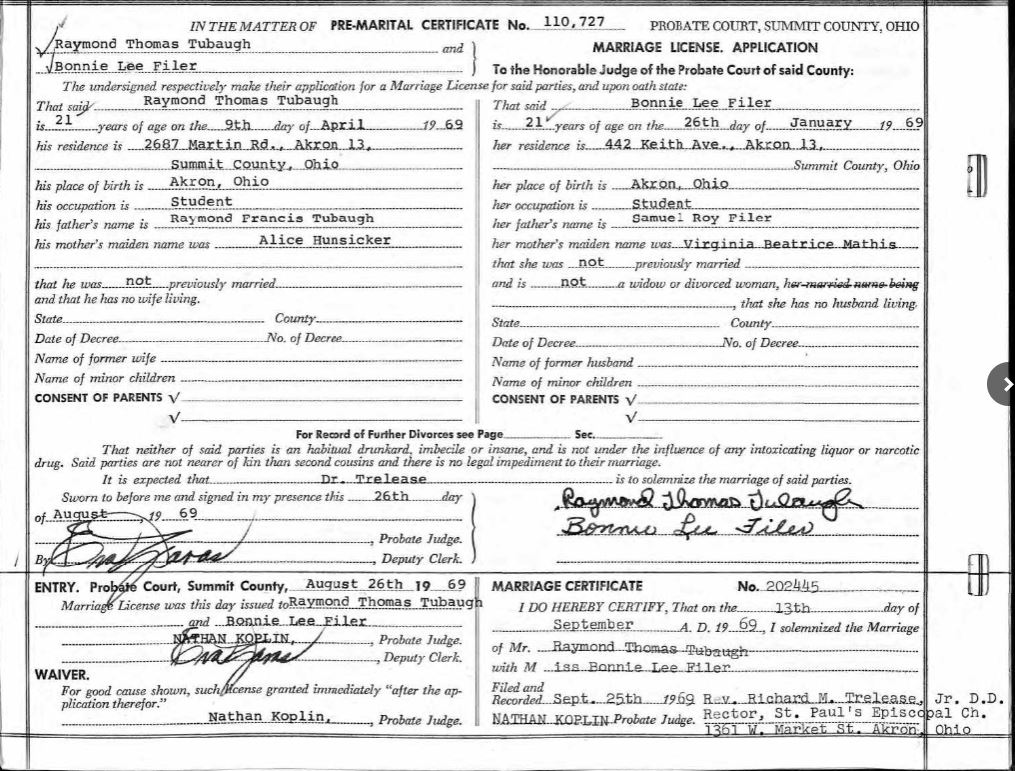 IN THE MATTER OF PRE-MARITAL CERTIFICATE No. 110,727 PROBATE COURT, SUMMIT COUNTY, OHIO
Raymond Thomas Tubaugh and
Bonnie Lee Filer
MARRIAGE LICENSE. APPLICATION
To the Honorable Judge of the Probate Court of said County:
The undersigned respectively make their application for a Marriage License for said parties, and upon oath state:
That said Raymond Thomas Tubaugh
is 21 years of age on the 9th day of April 19 69
his residence is 2687 Martin Rd., Akron 13,
Summit County, Ohio
his place of birth is Akron, Ohio
his occupation is Student
his father's name is Raymond Francis Tubaugh
his mother's maiden name was Alice Hunsicker
that he was not previously married
and that he has no wife living.
State County
Date of Decree No. of Decree
Name of former wife
Name of minor children
CONSENT OF PARENTS √
√
That said Bonnie Lee Filer
is 21 years of age on the 26th day of January 19 69
her residence is 442 Keith Ave., Akron 13,
Summit County, Ohio
her place of birth is Akron, Ohio
her occupation is Student
her father's name is Samuel Roy Filer
her mother's maiden name was Virginia Beatrice Mathis
that she was not previously married
and is not a widow or divorced woman, her married name being
, that she has no husband living.
State County
Date of Decree No. of Decree
Name of former husband
Name of minor children
CONSENT OF PARENTS √
√
For Record of Further Divorces see Page Sec.
That neither of said parties is an habitual drunkard, imbecile or insane, and is not under the influence of any intoxicating liquor or narcotic
drug. Said parties are not nearer of kin than second cousins and there is no legal impediment to their marriage.
It is expected that Dr. Trelease is to solemnize the marriage of said parties.
Sworn to before me and signed in my presence this 26th day
of August, 19 69
, Probate Judge.
By , Deputy Clerk.
Raymond Thomas Tubaugh
Bonnie Lee Filer
ENTRY. Probate Court, Summit County, August 26th 19 69
Marriage License was this day issued to Raymond Thomas Tubaugh
and Bonnie Lee Filer
NATHAN KOPLIN, , Probate Judge.
, Deputy Clerk.
WAIVER.
For good cause shown, such license granted immediately "after the ap-
plication therefor."
Nathan Koplin, , Probate Judge.
MARRIAGE CERTIFICATE No. 202445
I DO HEREBY CERTIFY, That on the 13th day of
September A. D. 19 69, I solemnized the Marriage
of Mr. Raymond Thomas Tubaugh
with M iss Bonnie Lee Filer
Filed and
Recorded Sept. 25th 1969 Rev. Richard M. Trelease, Jr. D.D.
NATHAN KOPLIN Probate Judge. Rector, St. Paul's Episcopal Ch.
1361 W. Market St. Akron, Ohio